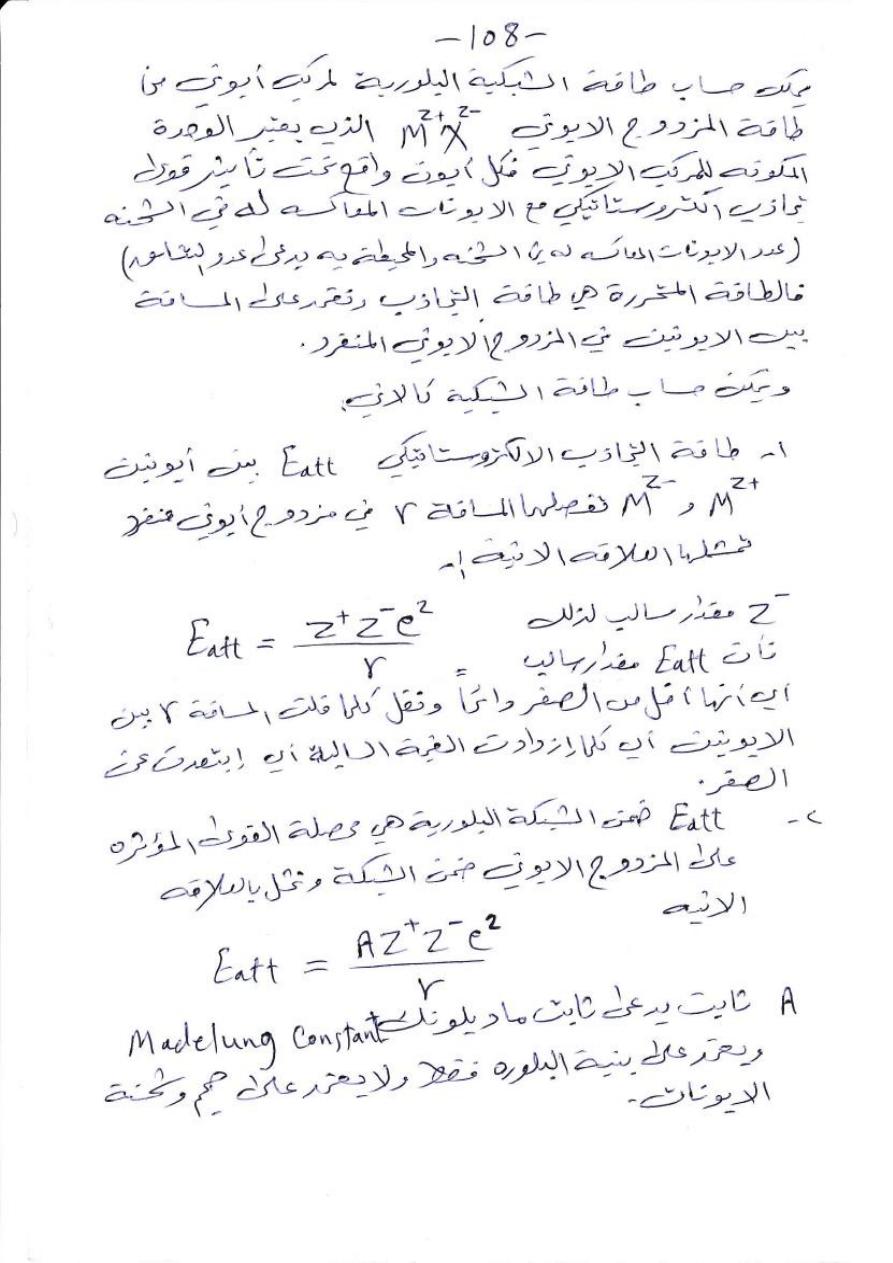 -108-
يمكن حساب طاقة الشبكية البلورية لمركب أيوني من
طاقة المزدوج الايوني M^{Z+}X^{Z-} الذي يعتبر الوحدة
المكونه للمركب الايوني فكل أيون واقع تحت تأثير قوى
تجاذب الكتروستاتيكي مع الايونات المعاكسه له في الشحنه
(عدد الايونات المعاكسه له في الشحنه والمحيطة به يدعى عدد التناسق)
فالطاقة المتحررة هي طاقة التجاذب وتعتمد على المسافة
بين الايونين في المزدوج الايوني المنفرد.
ويمكن حساب طاقة الشبكية كالاتي
١- طاقة التجاذب الالكتروستاتيكي Eatt بين أيونين
M^{Z+} و M^{Z-} تفصلهما المسافة r في مزدوج أيوني منفرد
تمثلها العلاقه الاتية :-
Z^- مقدار سالب لذلك
Eatt = Z^+ Z^- e^2 / r
فأن Eatt مقدار سالب
أي أنها أقل من الصفر دائماً وتقل كلما قلت المسافة r بين
الايونين أي كلما ازدادت القيمة السالبة أي إبتعدت عن
الصفر.
٢- Eatt ضمن الشبكة البلورية هي محصلة القوى المؤثره
على المزدوج الايوني ضمن الشبكة وتمثل بالعلاقه
الاتيه
Eatt = AZ^+ Z^- e^2 / r
A ثابت يدعى ثابت ماديلونك Madelung Constant
ويعتمد على بنية البلوره فقط ولا يعتمد على حجم وشحنة
الايونات.